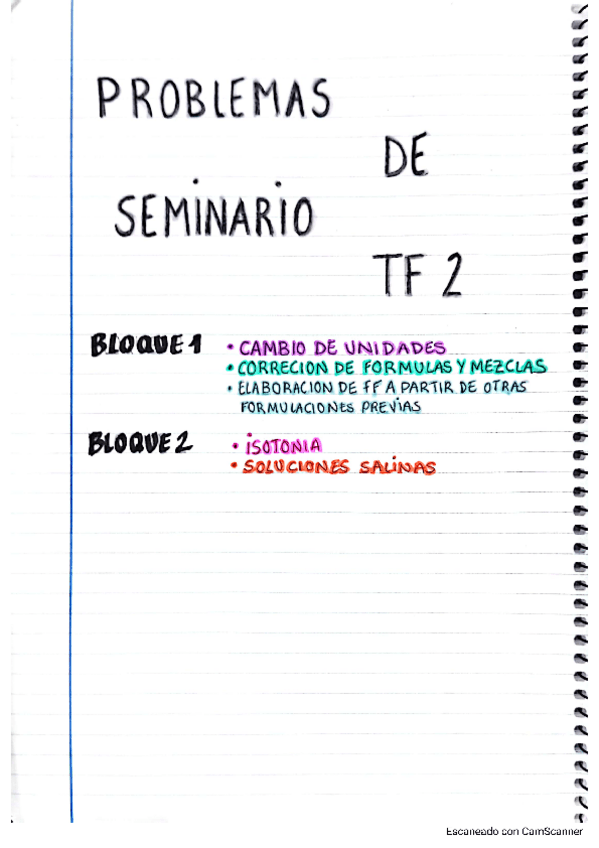 PROBLEMAS
DE
SEMINARIO
TF 2
BLOQUE 1 • CAMBIO DE UNIDADES
• CORRECION DE FORMULAS Y MEZCLAS
• ELABORACION DE FF A PARTIR DE OTRAS
FORMULACIONES PREVIAS
BLOQUE 2 • ISOTONIA
• SOLUCIONES SALINAS
Escaneado con CamScanner